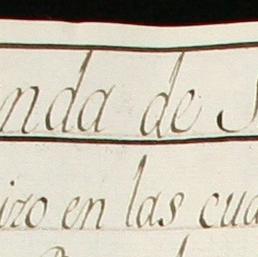 nda de
iro en las cua